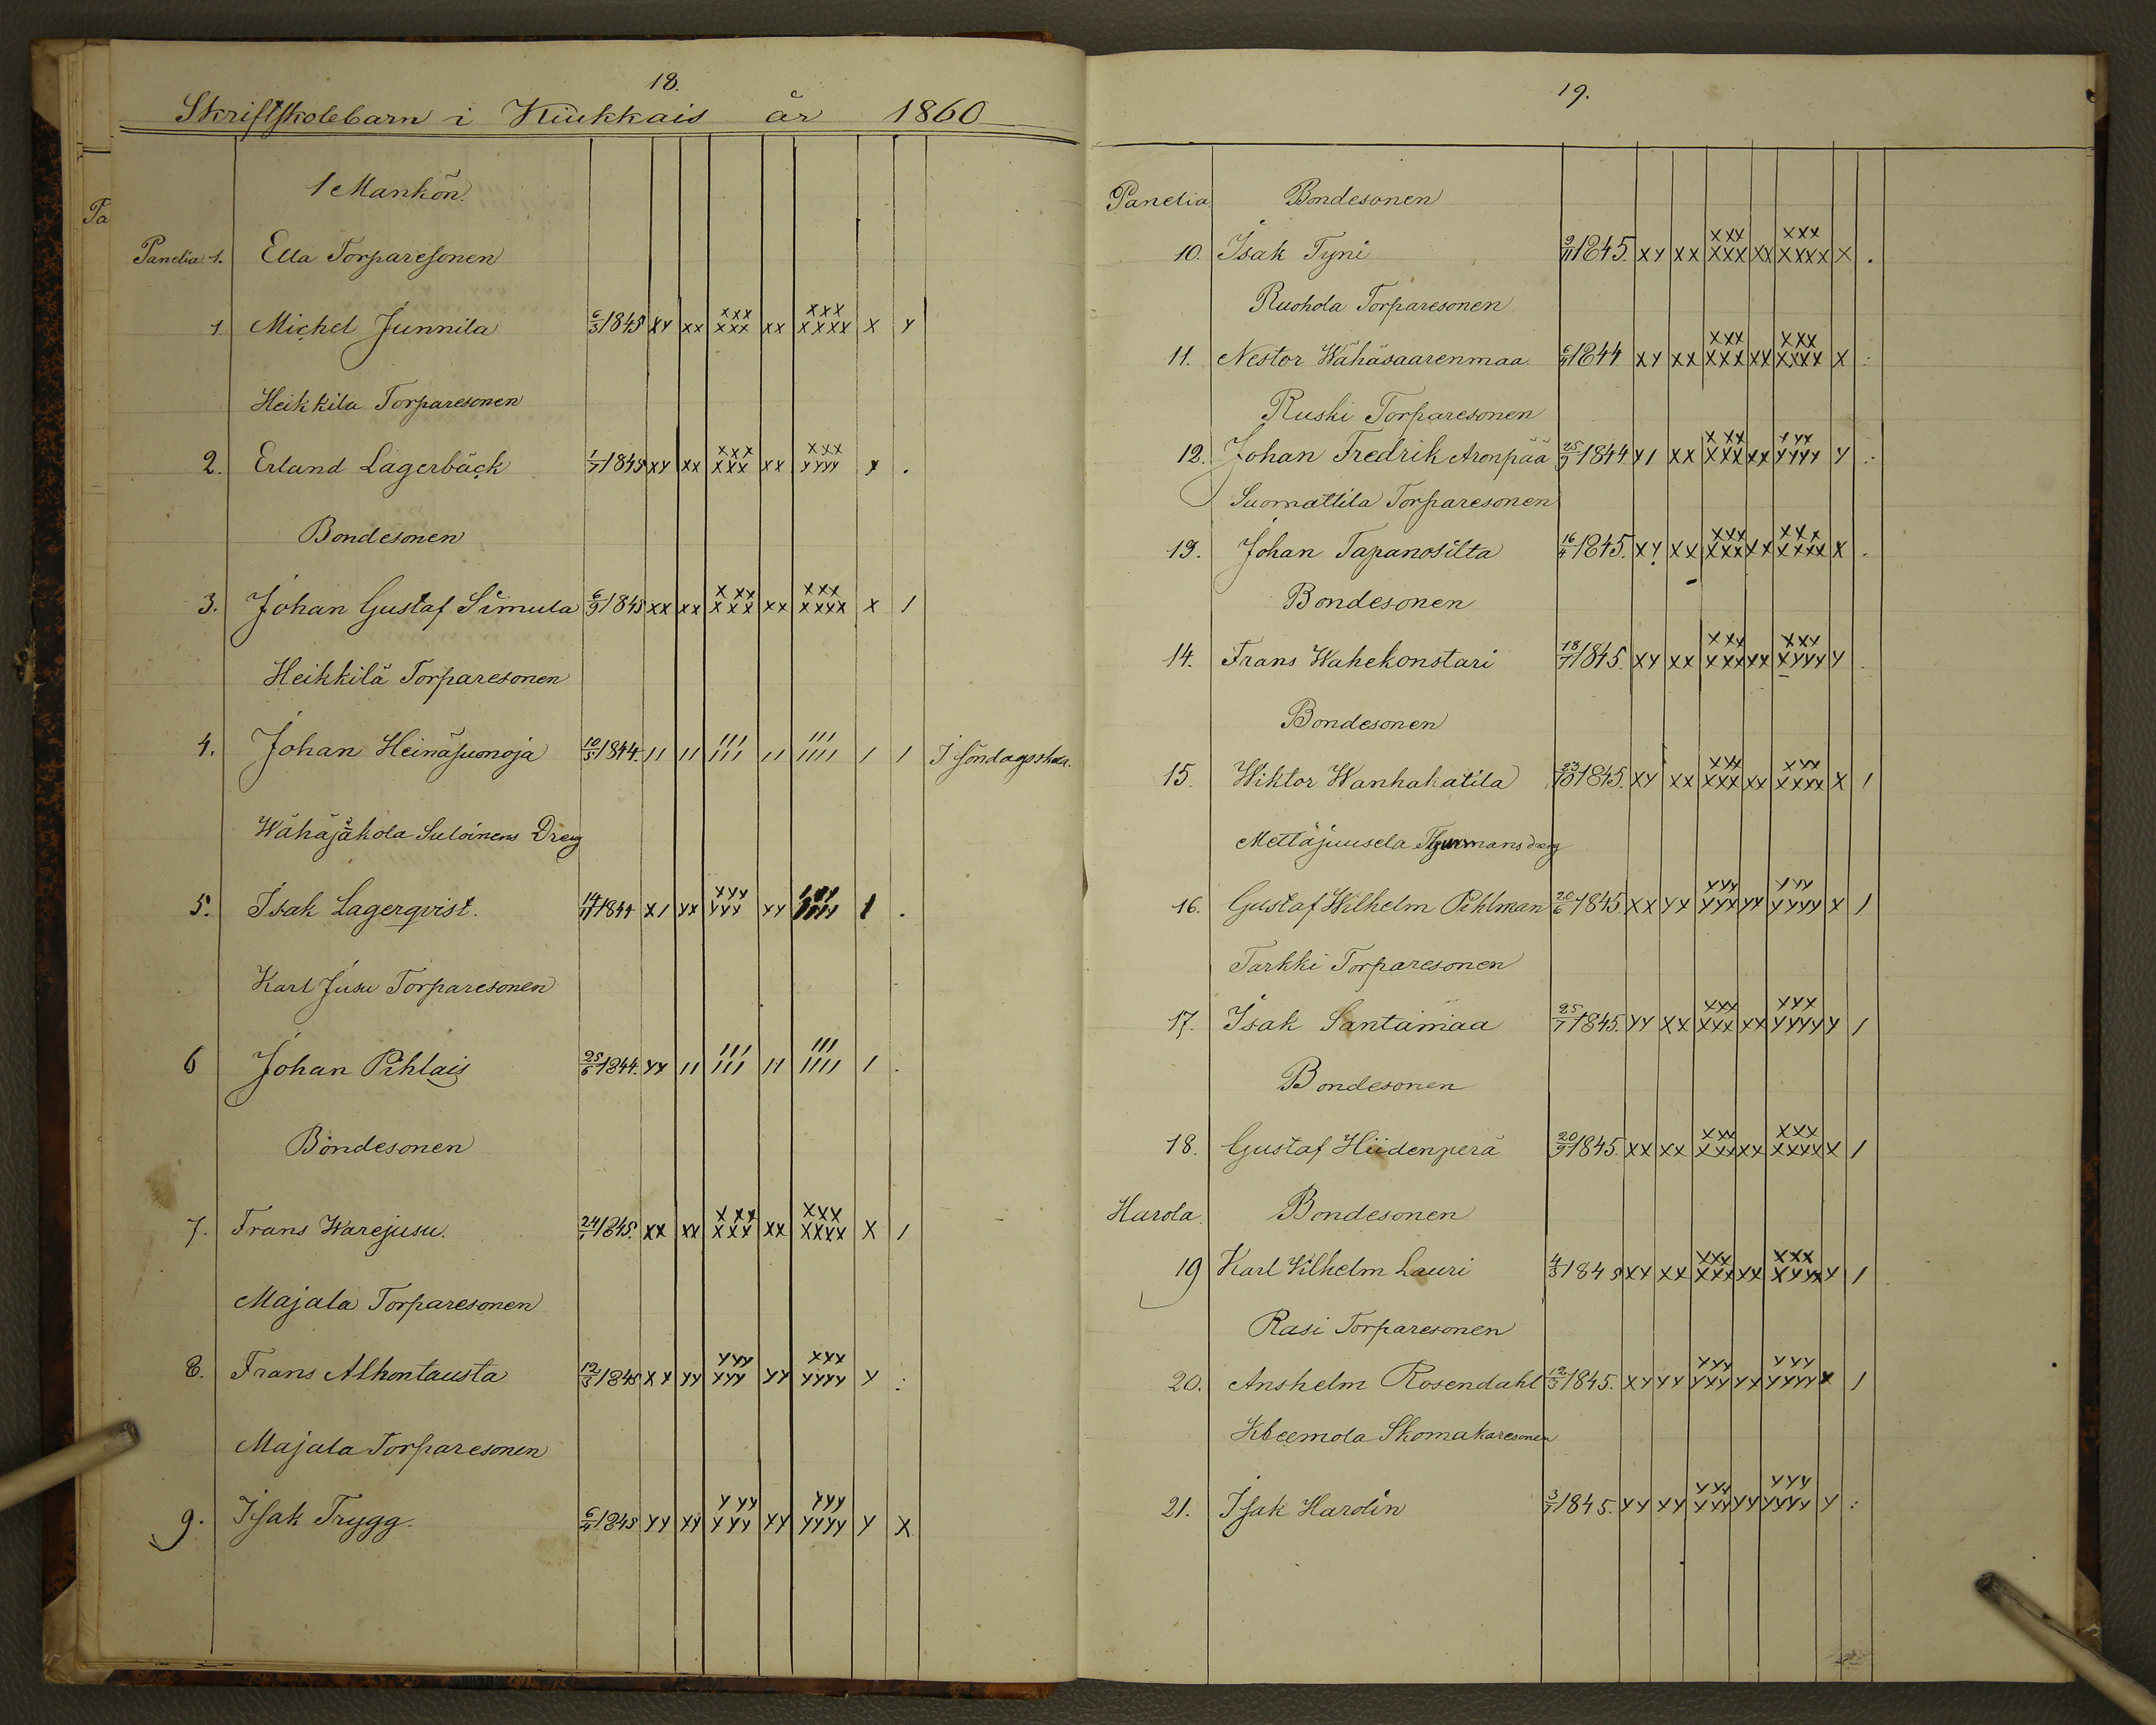 18.
Skriftskolebarn i Kiukkais år 1860
1 Mankön.
Pa
Panelia 1. Ella Torparesonen
1. Michel Junnila 6/3 1845 xx xx xxx xxx xx xxx xxxx x x
Heikkila Torparesonen
2. Erland Lagerbäck 1/7 1845 xx xx xxx xxx xx xxx xxxx x .
Bondesonen
3. Johan Gustaf Simula 6/9 1845 xx xx xxx xxx xx xxx xxxx x /
Heikkilä Torparesonen
4. Johan Heinäsuonoja 10/5 1844. // // /// /// // /// //// / / I söndagsskola.
Wähäjäkola Suloinens Dreng
5. Isak Lagerqvist. 14/11 1844 x/ xx xxx xxx xx //// / .
Karl Jusu Torparesonen
6 Johan Pihlais 25/6 1844. xx // /// /// // /// //// / .
Bondesonen
7. Frans Warejusu. 24/1 1845. xx xx xxx xxx xx xxx xxxx x /
Majala Torparesonen
8. Frans Alhontausta 12/3 1845 xx xx xxx xxx xx xxx xxxx x :
Majala Torparesonen
9. Isak Trygg. 6/4 1845 xx xx xxx xxx xx xxx xxxx x x
19.
Panelia Bondesonen
10. Isak Tyni 9/11 1845. xx xx xxx xxx xx xxx xxxx x .
Ruohola Torparesonen
11. Nestor Wähäsaarenmaa 6/9 1844 xx xx xxx xxx xx xxx xxxx x :
Ruski Torparesonen
12. Johan Fredrik Aronpää 25/9 1844. x/ xx xxx xxx xx xxx xxxx x :
Suomattila Torparesonen
13. Johan Tapanosilta 16/4 1845. xx xx xxx xxx xx xxx xxxx x .
Bondesonen
14. Frans Wahekonstari 18/7 1845. xx xx xxx xxx xx xxx xxxx x .
Bondesonen
15. Wiktor Wanhakatila 23/10 1845. xx xx xxx xxx xx xxx xxxx x /
Mettäjuusela Thurmans dreng
16. Gustaf Wilhelm Pihlman 20/6 1845 xx xx xxx xxx xx xxx xxxx x /
Tarkki Torparesonen
17. Isak Santamaa 25/7 1845. xx xx xxx xxx xx xxx xxxx x /
Bondesonen
18. Gustaf Hiidenperä 20/9 1845. xx xx xxx xxx xx xxx xxxx x /
Harola Bondesonen
19 Karl Vilhelm Lauri 4/3 1845 xx xx xxx xxx xx xxx xxxx x /
Rasi Torparesonen
20. Anshelm Rosendahl 12/3 1845. xx xx xxx xxx xx xxx xxxx x /
Kleemola Skomakaresonen
21. Isak Harolin 3/7 1845. xx xx xxx xxx xx xxx xxxx x :